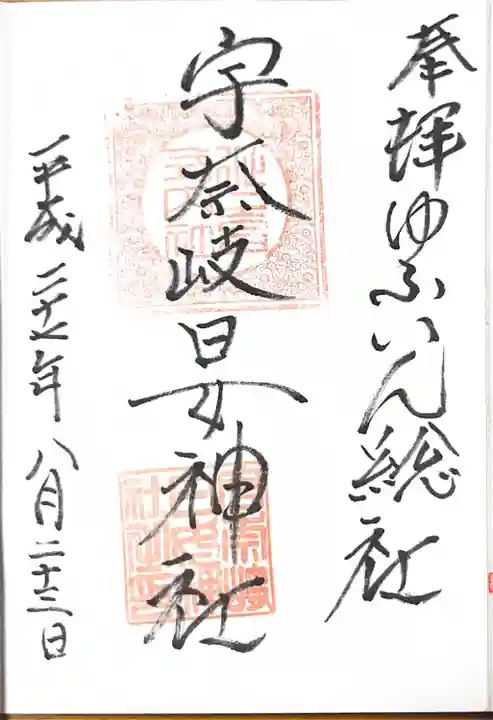 奉拝 ゆふいん総社
宇奈岐日女神社
平成二十七年八月二十三日